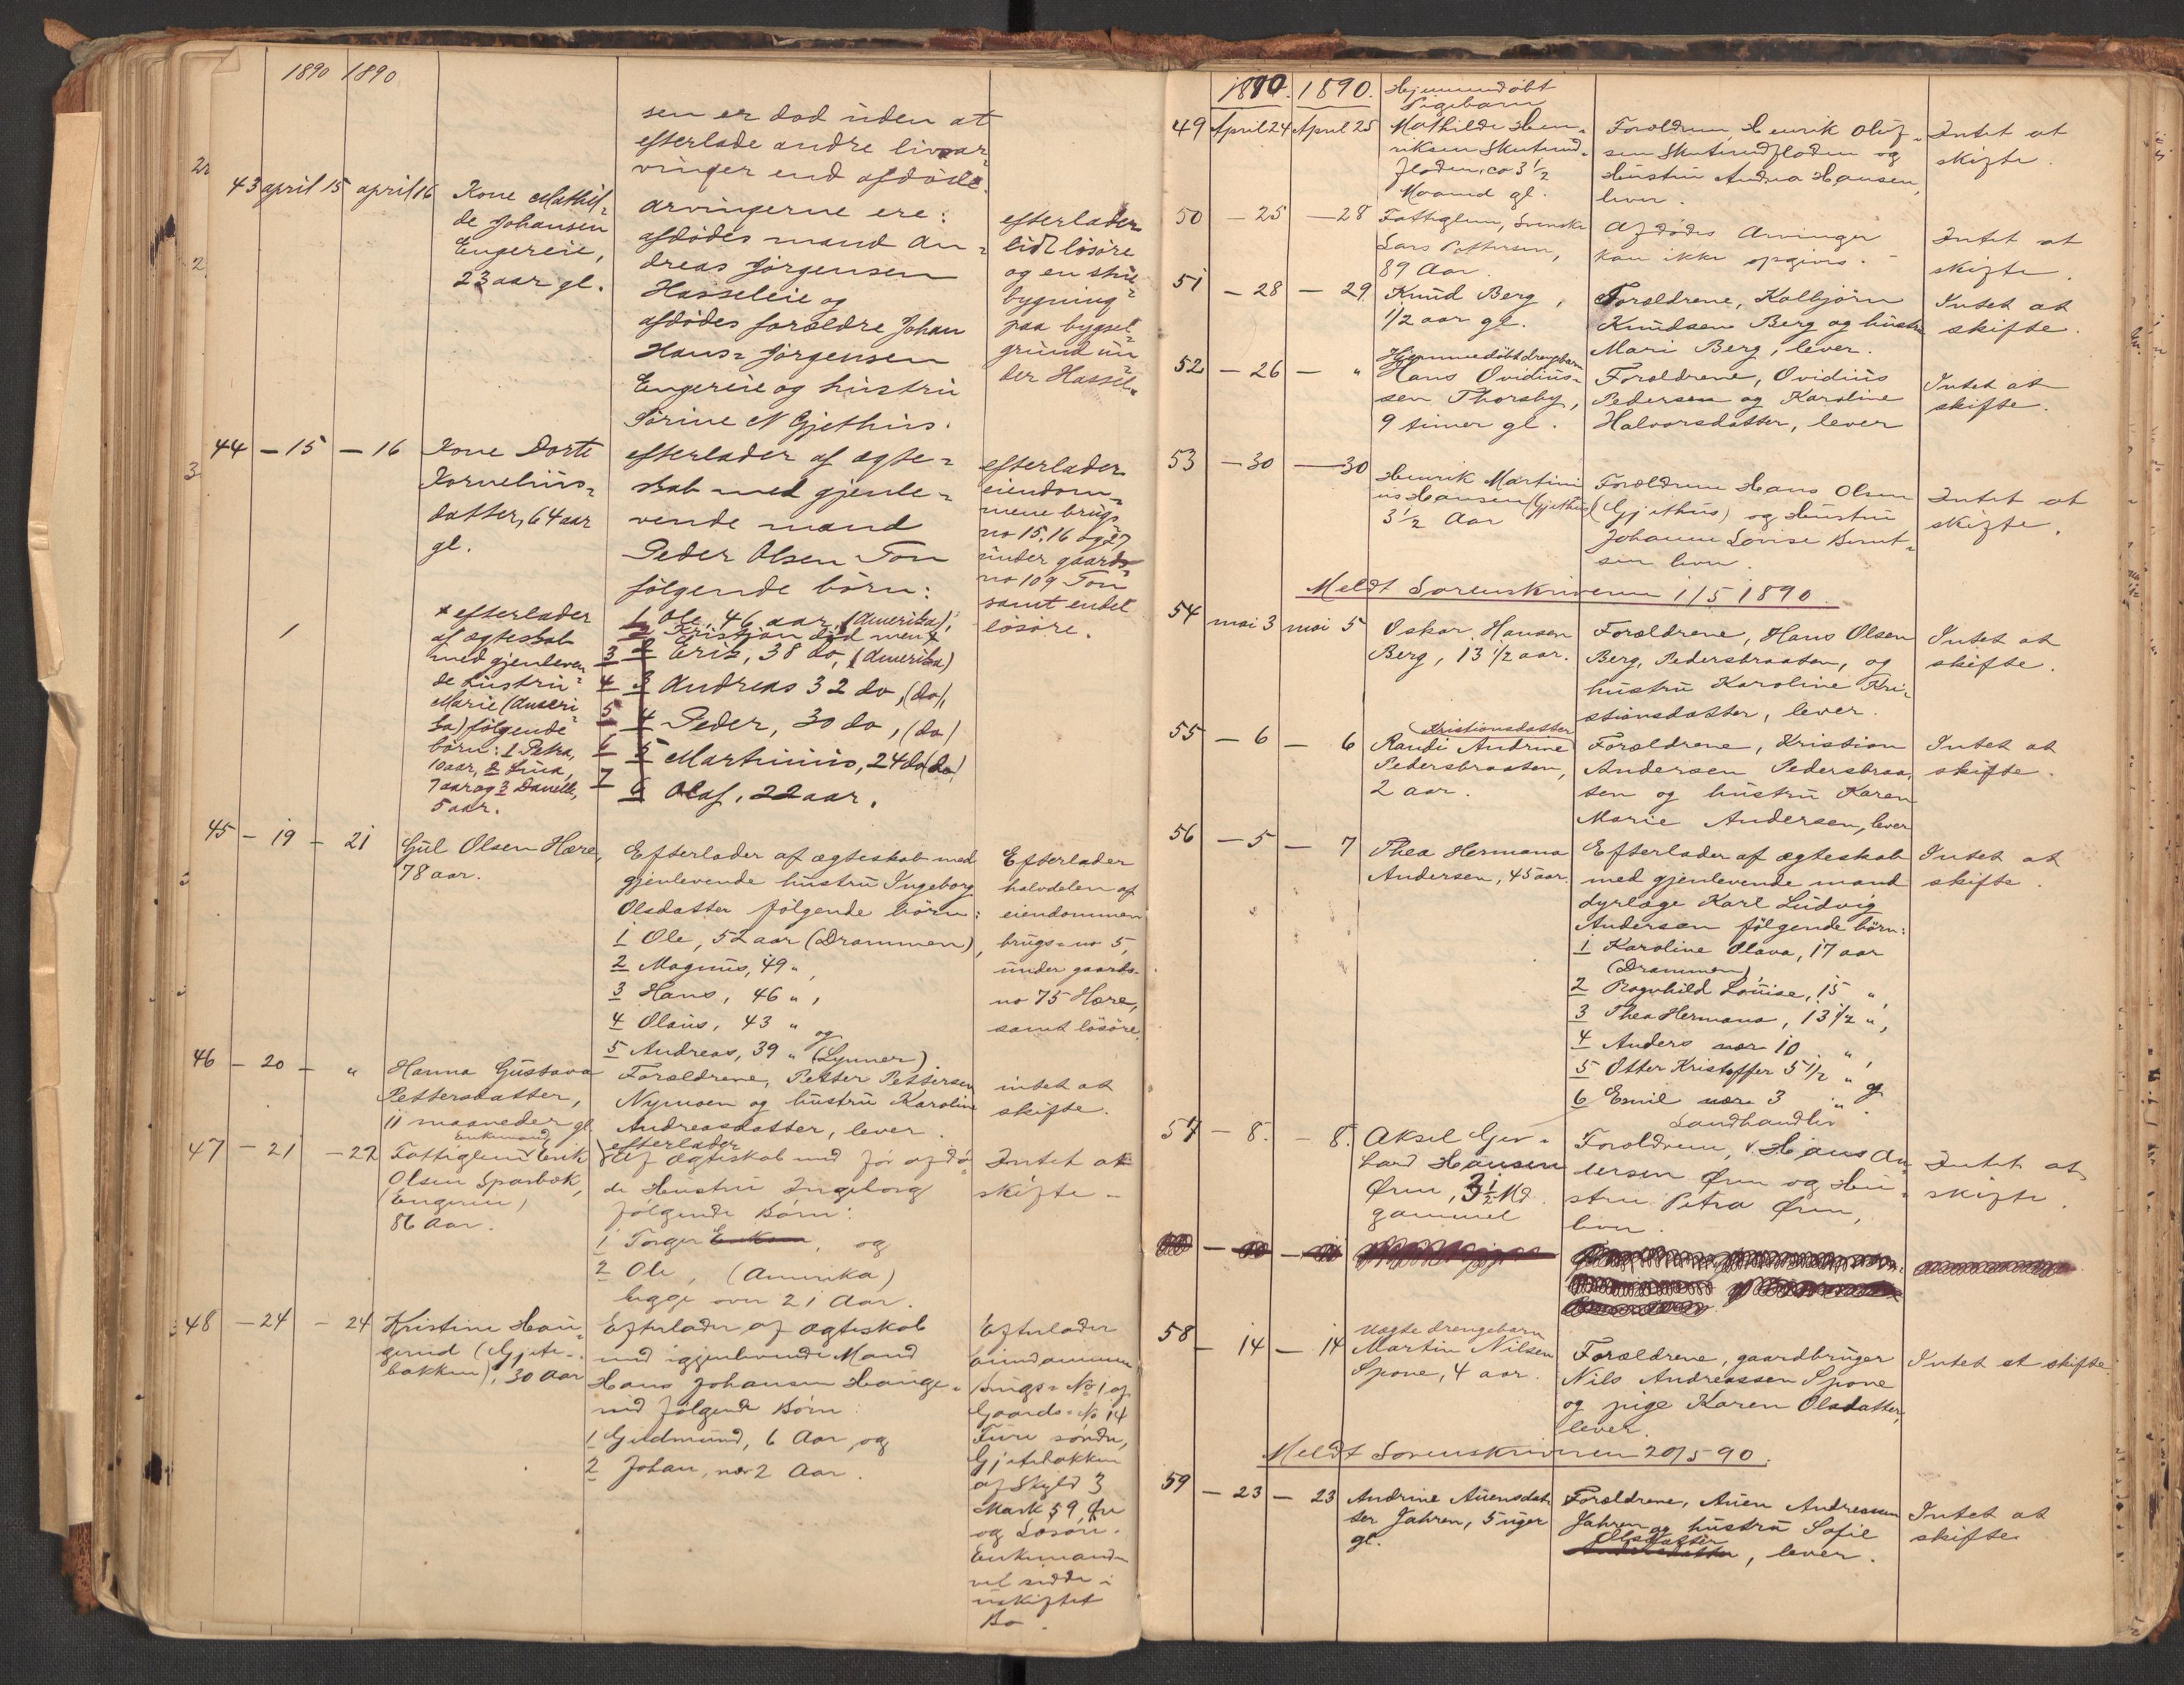 1890 1890
sen er död uden at
efterlade andre livsar-
vinger end afdöde.
43 april 15 april 16
Kone Mathil-
de Johansen
Engereie,
23 aar gl.
arvingerne ere:
afdödes mand An-
dreas Jörgensen
Hasseleie og
afdödes forældre Johan
Hans- Jörgensen
Engereie og hustru
Sörine N Gjethus.
efterlader
lidt lösöre
og en stue-
bygning
paa bygsel-
grund un-
der Hassel.
44 - 15 - 16
Kone Dorte
Kornelius-
datter, 64 aar
gl.
efterlader af ægte-
skab med gjenle-
vende mand
Peder Olsen Ton
fölgende börn:
1 Ole, 46 aar, (Amerika),
2 Kristjan död men x
3 2 Erik, 38 do, (Amerika)
4 3 Andreas 32 do, (do),
5 4 Peder, 30 do, (do)
6 5 Martinius, 24 do (do)
7 6 Olaf, 22 aar.
x efterlader
af ægteskab
med gjenleven
de hustru
Marie (Ameri-
ka) fölgende
börn: 1 Petra,
10 aar, 2
7 aar og 3
5 aar.
efterlader
eiendom-
mene brugs
no 15, 16 og 27
under gaards-
no 109 Ton
samt endel
lösöre.
45 - 19 - 21
Gul Olsen Hære,
78 aar.
Efterlader af ægteskab med
gjenlevende hustru Ingeborg
Olsdatter fölgende börn:
1 Ole, 52 aar (Drammen),
2 Magnus, 49 " ,
3 Hans, 46 " ,
4 Olaus, 43 " og
5 Andreas, 39 " (Lynner)
Efterlader
halvdelen af
eiendommen
brugs- no 5,
under gaards-
no 75 Hære,
samt lösöre.
46 - 20 - "
Hanna Gustava
Pettersdatter,
11 maaneder gl
Forældrene, Petter Pettersen
Nymoen og hustru Karoline
Andreasdatter, lever.
intet at
skifte.
47 - 21 - 22
Enkemand
Fattiglem Erik
Olsen Sparbok,
(Engerne)
86 Aar.
efterlader
Af Ægteskab med för afdö-
de Hustru Ingeborg
fölgende Börn:
1 Torger , og
2 Ole, (Amerika)
begge over 21 Aar.
Intet at
skifte -
48 - 24 - 24
Kristine Hau-
gerud (Gjete-
bakken), 30 Aar
Efterlader af Ægteskab
med igjenlevende Mand
Hans Johansen Hauge-
rud fölgende Börn:
1 Gudmund, 6 Aar, og
2 Johan, nær 2 Aar.
Efterlader
Eiendommen
Brugs- No 1 af
Gaards- No 14
Furu söndre,
Gjetebakken
af Skyld 3
Mark 59 Öre
og Lösöre.
Enkemanden
vel sidde i
uskiftet
Bo.
1890. 1890.
49 April 24 April 25
Hjemmedöbt
Pigebarn
Mathilde Hen-
riksen Skutrud-
floden, ca 3 1/2
Maaned gl.
Forældrene, Henrik Oluf-
sen Skutrudfloden og
Hustru Andrea Hansen,
lever.
Intet at
skifte.
50 - 25 - 28
Fattiglem, Svenske
Lars Pettersen,
89 Aar.
Afdödes Arvinger
kan ikke opgives. -
Intet at
skifte.
51 - 28 - 29
Knud Berg,
1/2 aar gl.
Forældrene, Kolbjörn
Knudsen Berg og hustru
Mari Berg, lever.
Intet at
skifte.
52 - 26 - "
Hjemmedöbt drengebarn
Hans Ovidius-
sen Thorsby,
9 timer gl.
Forældrene, Ovidius
Pedersen og Karoline
Halvorsdatter, lever
Intet at
skifte.
53 - 30 - 30
Henrik Martini
us Hansen (Gjethus)
3 1/2 Aar
Forældrene Hans Olsen
(Gjethus) og Hustru
Johanne Lovise Bernt-
sen lever.
Intet at
skifte.
Meldt Sorenskriveren 1/5 1890.
54 mai 3 mai 5
Oskar Hansen
Berg, 13 1/2 aar.
Forældrene, Hans Olsen
Berg, Pedersbraaten, og
hustru Karoline Kri-
stiansdatter, lever.
Intet at
skifte.
55 - 6 - 6
Kristiansdatter
Randi Andrine
Pedersbraaten,
2 aar.
Forældrene, Kristian
Andersen Pedersbraa-
ten og hustru Karen
Marie Andersen, lever
Intet at
skifte.
56 - 5 - 7
Thea Hermana
Andersen, 45 aar.
Efterlader af ægteskab
med gjenlevende mand
dyrlæge Karl Ludvig
Andersen fölgende börn:
1 Karoline Olava, 17 aar
(Drammen),
2 Ragnhild Louise, 15 " ,
3 Thea Hermana, 13 1/2 ",
4 Anders nær 10 " ,
5 Otter Kristoffer 5 1/2 " og
6 Emil nær 3 " .
Intet at
skifte.
57 - 8. - 8.
Aksel Ger-
hard Hansen
Ören, 3 1/2 Md
gammel
Landhandler
Forældrene, Hans An-
dersen Ören og Hu-
stru Petra Ören,
lever.
Intet at
skifte.
58 - 14 - 14
uægte drengebarn
Martin Nilsen
Spone, 4 aar.
Forældrene, gaardbruger
Nils Andreassen Spone
og pige Karen Olsdatter,
lever.
Intet at skifte.
Meldt Sorenskriveren 20/5 90.
59 - 23 - 23
Andrine Auensdat-
ter Jahren, 5 uger
gl.
Forældrene, Auen Andreassen
Jahren og hustru Sofie
Olsdatter
, lever.
Intet at
skifte.